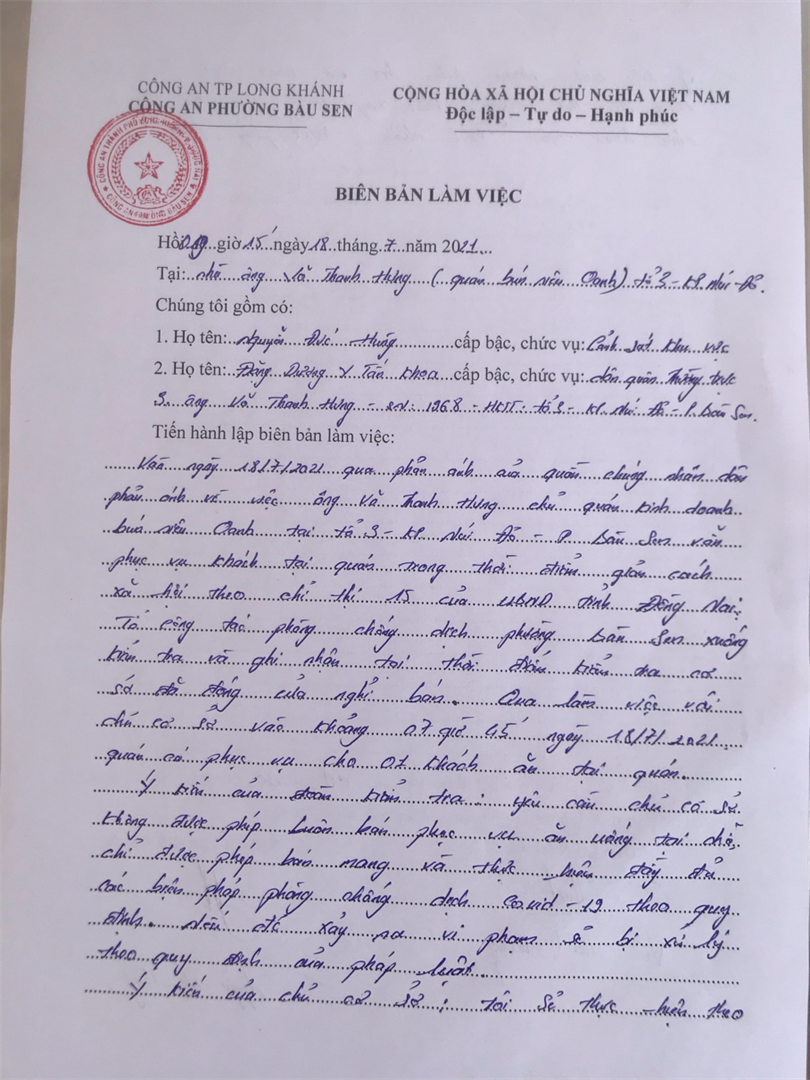 CÔNG AN TP LONG KHÁNH
CÔNG AN PHƯỜNG BÀU SEN
CỘNG HÒA XÃ HỘI CHỦ NGHĨA VIỆT NAM
Độc lập – Tự do – Hạnh phúc
BIÊN BẢN LÀM VIỆC
Hồi giờ 15' ngày 18 tháng 7 năm 2021
Tại: nhà ông Thanh Hưng (quán bún riêu Oanh) tổ 3 - KP. Núi Đỏ.
Chúng tôi gồm có:
1. Họ tên: Nguyễn Đức cấp bậc, chức vụ: Cảnh sát khu vực
2. Họ tên: Đặng Dương Y Tấn Khoa cấp bậc, chức vụ: dân quân thường trực
3. ông Thanh Hưng - sn: 1968 - HKTT: tổ 3 - KP. Núi Đỏ - P. Bàu Sen.
Tiến hành lập biên bản làm việc:
Vào ngày 18/7/2021 qua phản ánh của quần chúng nhân dân
phản ánh về việc ông Thanh Hưng chủ quán kinh doanh
bún riêu Oanh tại tổ 3 - KP. Núi Đỏ - P. Bàu Sen vẫn
phục vụ khách tại quán trong thời điểm giãn cách
xã hội theo chỉ thị 15 của UBND tỉnh Đồng Nai.
Tổ công tác phòng chống dịch phường Bàu Sen xuống
kiểm tra và ghi nhận tại thời điểm kiểm tra cơ
sở đã đóng cửa nghỉ bán. Qua làm việc với
chủ cơ sở vào khoảng 07 giờ 45' ngày 18/7/2021
quán có phục vụ cho 01 khách ăn tại quán.
Ý kiến của đoàn kiểm tra: yêu cầu chủ cơ sở
không được phép buôn bán phục vụ ăn uống tại chỗ,
chỉ được phép bán mang về thực hiện đầy đủ
các biện pháp phòng chống dịch Covid-19 theo quy
định. Nếu để xảy ra vi phạm sẽ bị xử lý
theo quy định của pháp luật.
Ý kiến của chủ cơ sở: tôi sẽ thực hiện theo